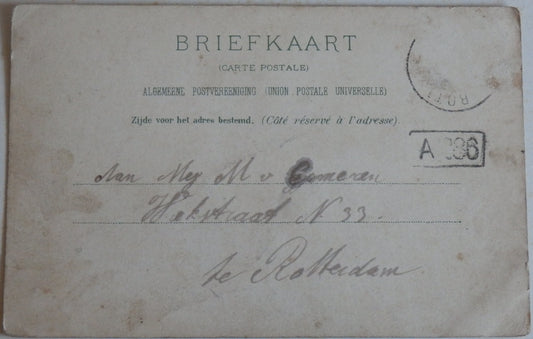 BRIEFKAART
(CARTE POSTALE)
ALGEMEENE POSTVEREENIGING (UNION POSTALE UNIVERSELLE)
Zijde voor het adres bestemd. (Côté réservé à l'adresse).
ROTT
A 286
Aan Mej M v Gameren
N 33.
te Rotterdam